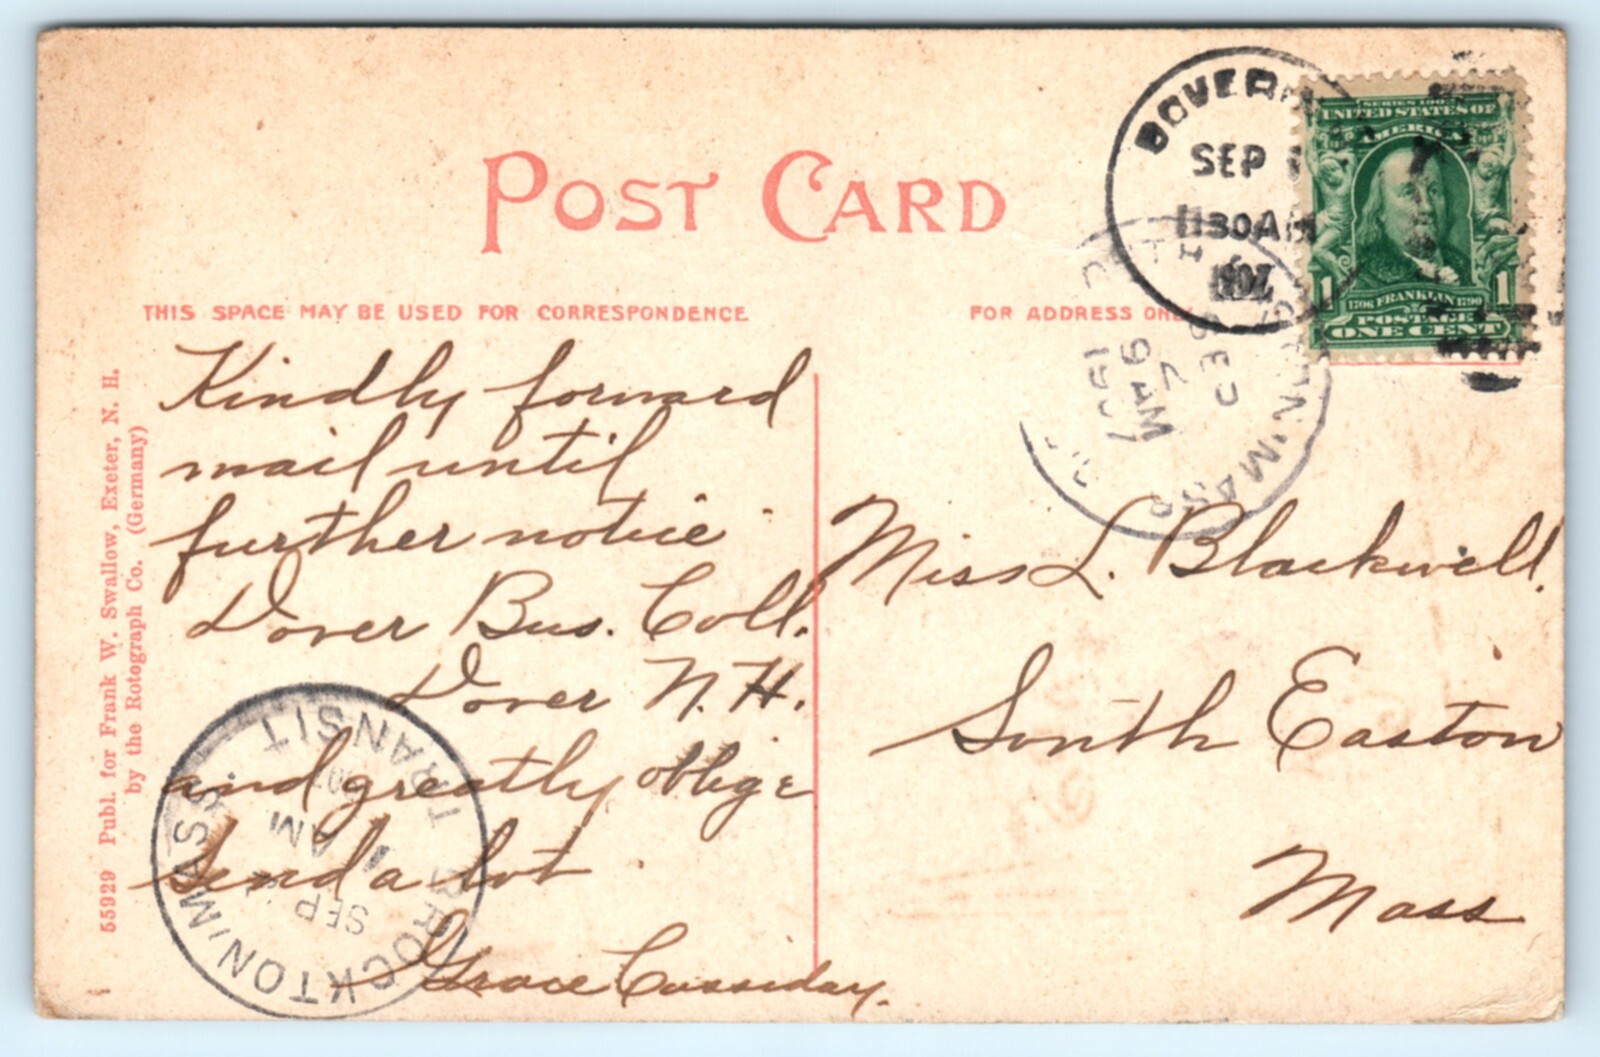 POST CARD
THIS SPACE MAY BE USED FOR CORRESPONDENCE
FOR ADDRESS ONLY
Kindly forward
mail until
further notice
Dover Bus. Coll.
Dover N. H.
and greatly oblige
Send a lot
Grace Cassiday.
Miss L. Blackwell.
South Easton
Mass
55929 Publ. for Frank W. Swallow, Exeter, N. H.
by the Rotograph Co. (Germany)
DOVER
SEP
1130AM
1907
SERIES 1902
UNITED STATES OF
AMERICA
1 1706 FRANKLIN 1790 1
POSTAGE
ONE CENT
SEP
7
9 AM
1907
MASS
BROCKTON, MASS
TRANSIT
SEP
1 AM